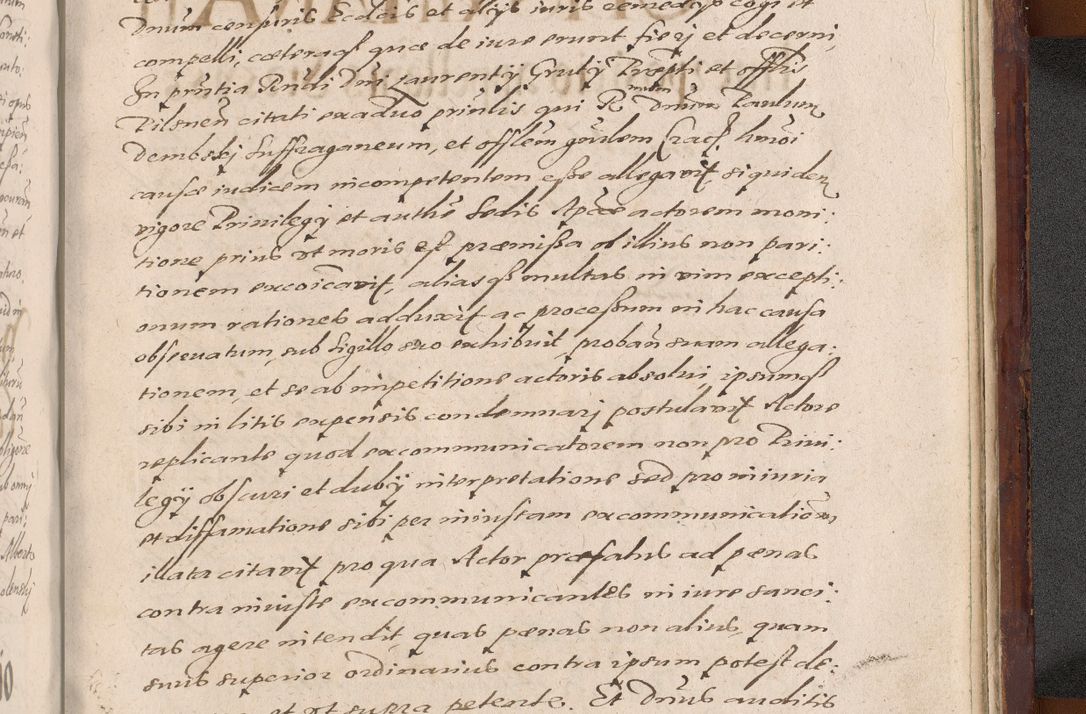 Dnum censuris Ecclcis et alijs iuris remedijs cogi et
compelli, cæteraqȝ quæ de iure erunt fierj et decerni,
In pñtia Rndi Dni Laurentij Grutij Præpti et offlis
Pilsneñ citati ex aduo prinlis qui R mum Dnum Paulum
Dembskj Suffraganeum, et offlem gñalem Crac. hmõi
causæ iudicem incompetentem esse allegavit siquidem
vigore Privilegij et authe Sedis Apcæ actorem moni:
tione prius ut moris est præmissa ob illius non pari:
tionem excõicavit, aliasqȝ multas in vim excepti:
onum rationes adduxit ac processum in hac causa
obseruatum, sub Sigillo suo exhibuit, probañ suam allega:
tionem, et se ab impetitione actoris absolui, ipsumqȝ
sibi in litis expensis condemnarj postulavit Actore
replicante quod excommunicatorem non pro Privi:
legij obscuri et dubij interpretatione sed pro iniuria
et diffamatione sibi per iniustam excommunicationem
illata citavit pro qua Actor præfatus ad pænas
contra iniuste excommunicantes in iure sanci:
tas agere intendit, quas pænas non alius, quam
suus superior ordinarius contra ipsum potest de:
et ut supra petente. Et Dnus auditis